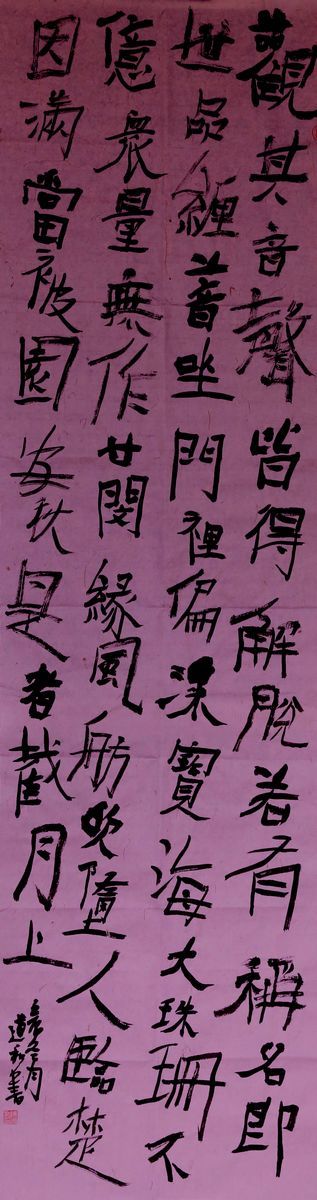 觀其音聲皆得解脫若有稱名即
世品纏蓄坐門裡偏深寶海大珠珊不
億衆量無作廿閔緣風舫墮人臨楚
因滿當被園是者截月上
月
書